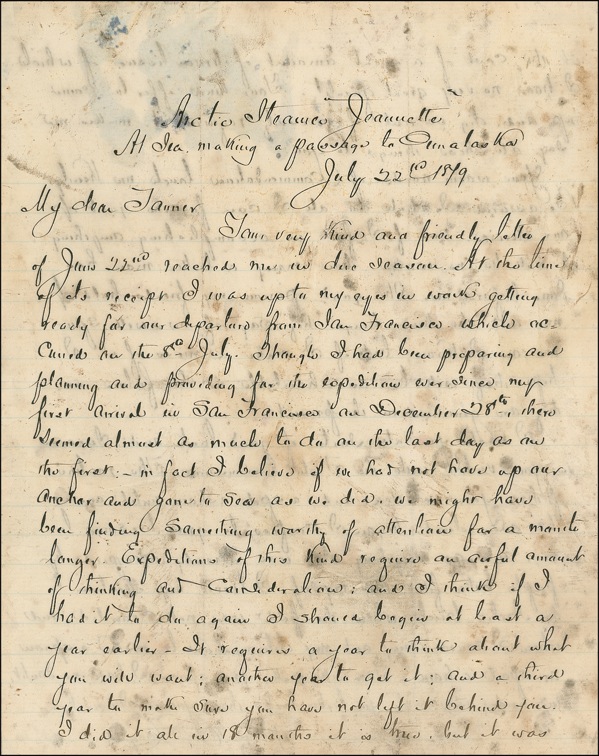 Arctic Steamer "Jeannette"
At Sea, making a passage to Ounalaska
July 22nd 1879
My dear Tanner
Your very kind and friendly letter
of June 22nd reached me in due season. At the time
of its receipt I was up to my eyes in work getting
ready for our departure from San Francisco which oc-
cured on the 8th July. Though I had been preparing and
planning and providing for the expedition ever since my
first arrival in San Francisco on December 28th, there
seemed almost as much to do on the last day as on
the first:- in fact I believe if we had not hove up our
anchor and gone to sea as we did, we might have
been finding something worthy of attention for a month
longer. Expeditions of this kind require an awful amount
of thinking and consideration; and I think if I
had it to do again I should begin at least a
year earlier - It requires a year to think about what
you will want; another year to get it; and a third
year to make sure you have not left it behind you.
I did it all in 18 months it is true, but it was